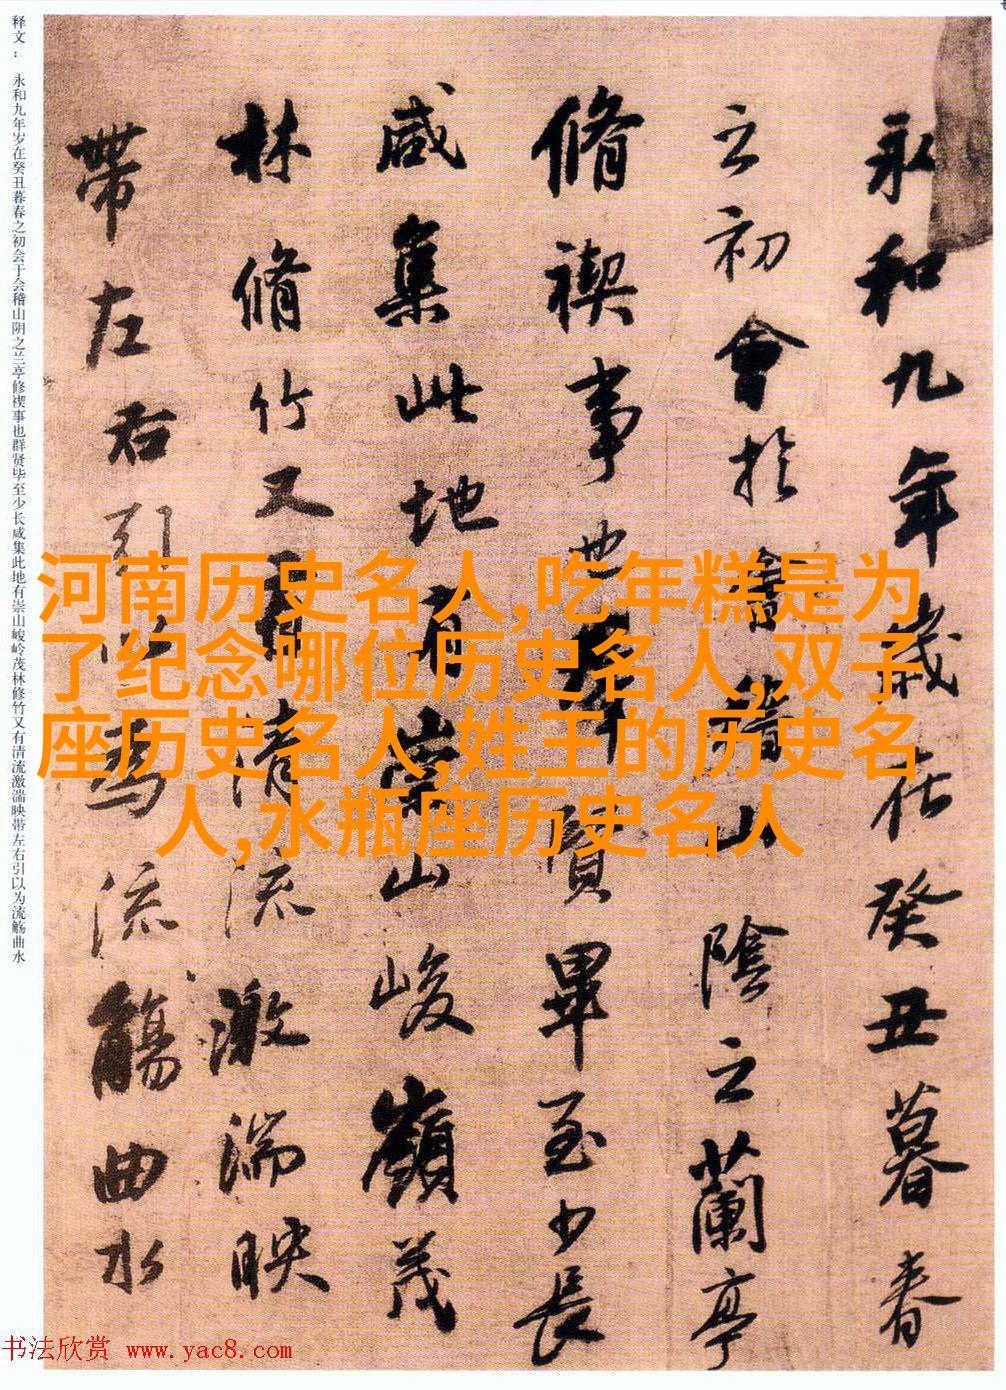 释文： 永和九年岁在癸丑暮春之初会于会稽山阴之兰亭修禊事也群贤毕至少长咸集此地有崇山峻岭茂林修竹又有清流激湍映带左右引以为流觞曲水
永和九年歲在癸丑暮春
之初會於會稽山陰之蘭亭
脩禊事也羣賢畢至少長
咸集此地有崇山峻嶺茂
林脩竹又有清流激湍映
帶左右引以爲流觴曲水
河南历史名人,吃年糕是为
了纪念哪位历史名人,双子
座历史名人,姓王的历史名
人,水瓶座历史名人
书法欣赏 www.yac8.com